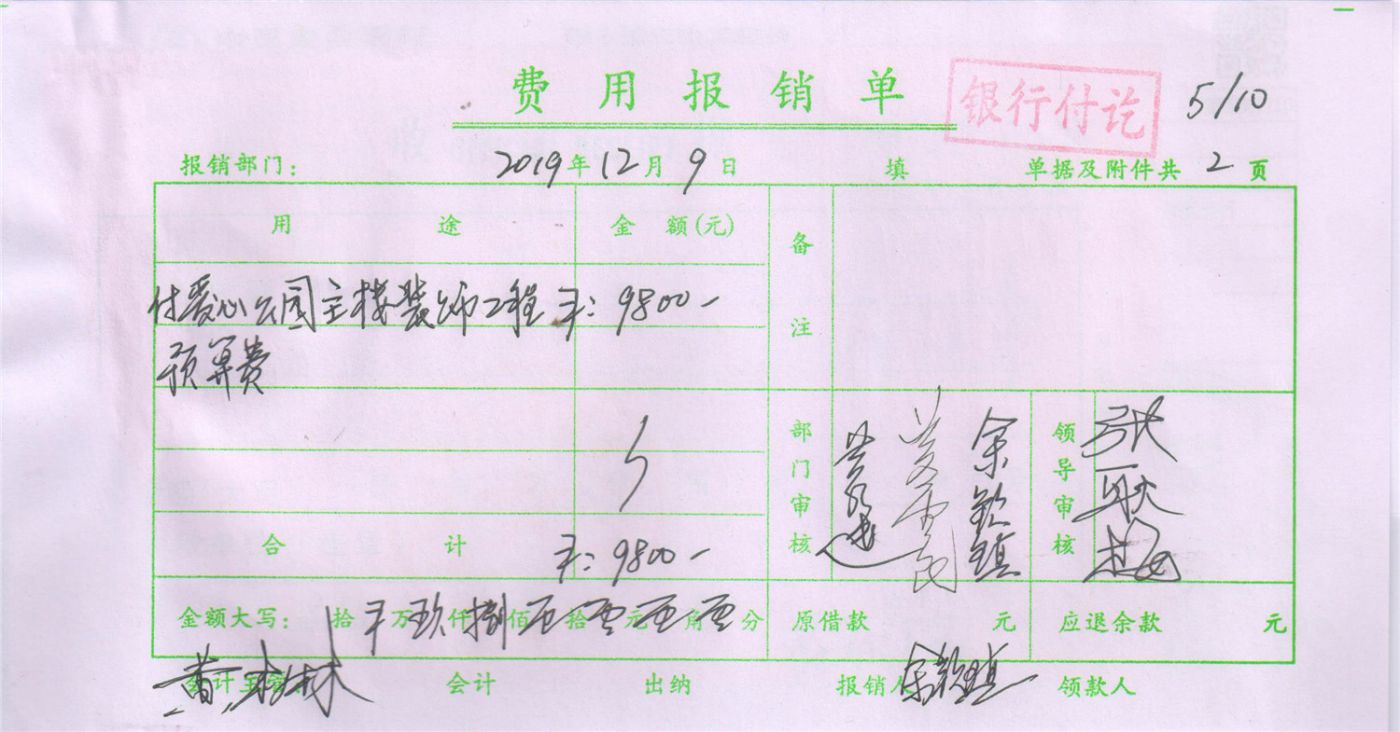 费用报销单
银行付讫
5/10
报销部门: 2019年12月9日 填 单据及附件共 2 页
用 途 金 额(元) 备注
付爱心公园主楼装饰工程 ¥: 9800-
预算费
部门审核 余钦镇 领导审核
合 计 ¥: 9800-
金额大写: 拾 ¥ 万 玖 仟 捌 佰 零 拾 零 元 零 角 零 分 原借款 元 应退余款 元
会计主管 会计 出纳 报销人 余钦镇 领款人